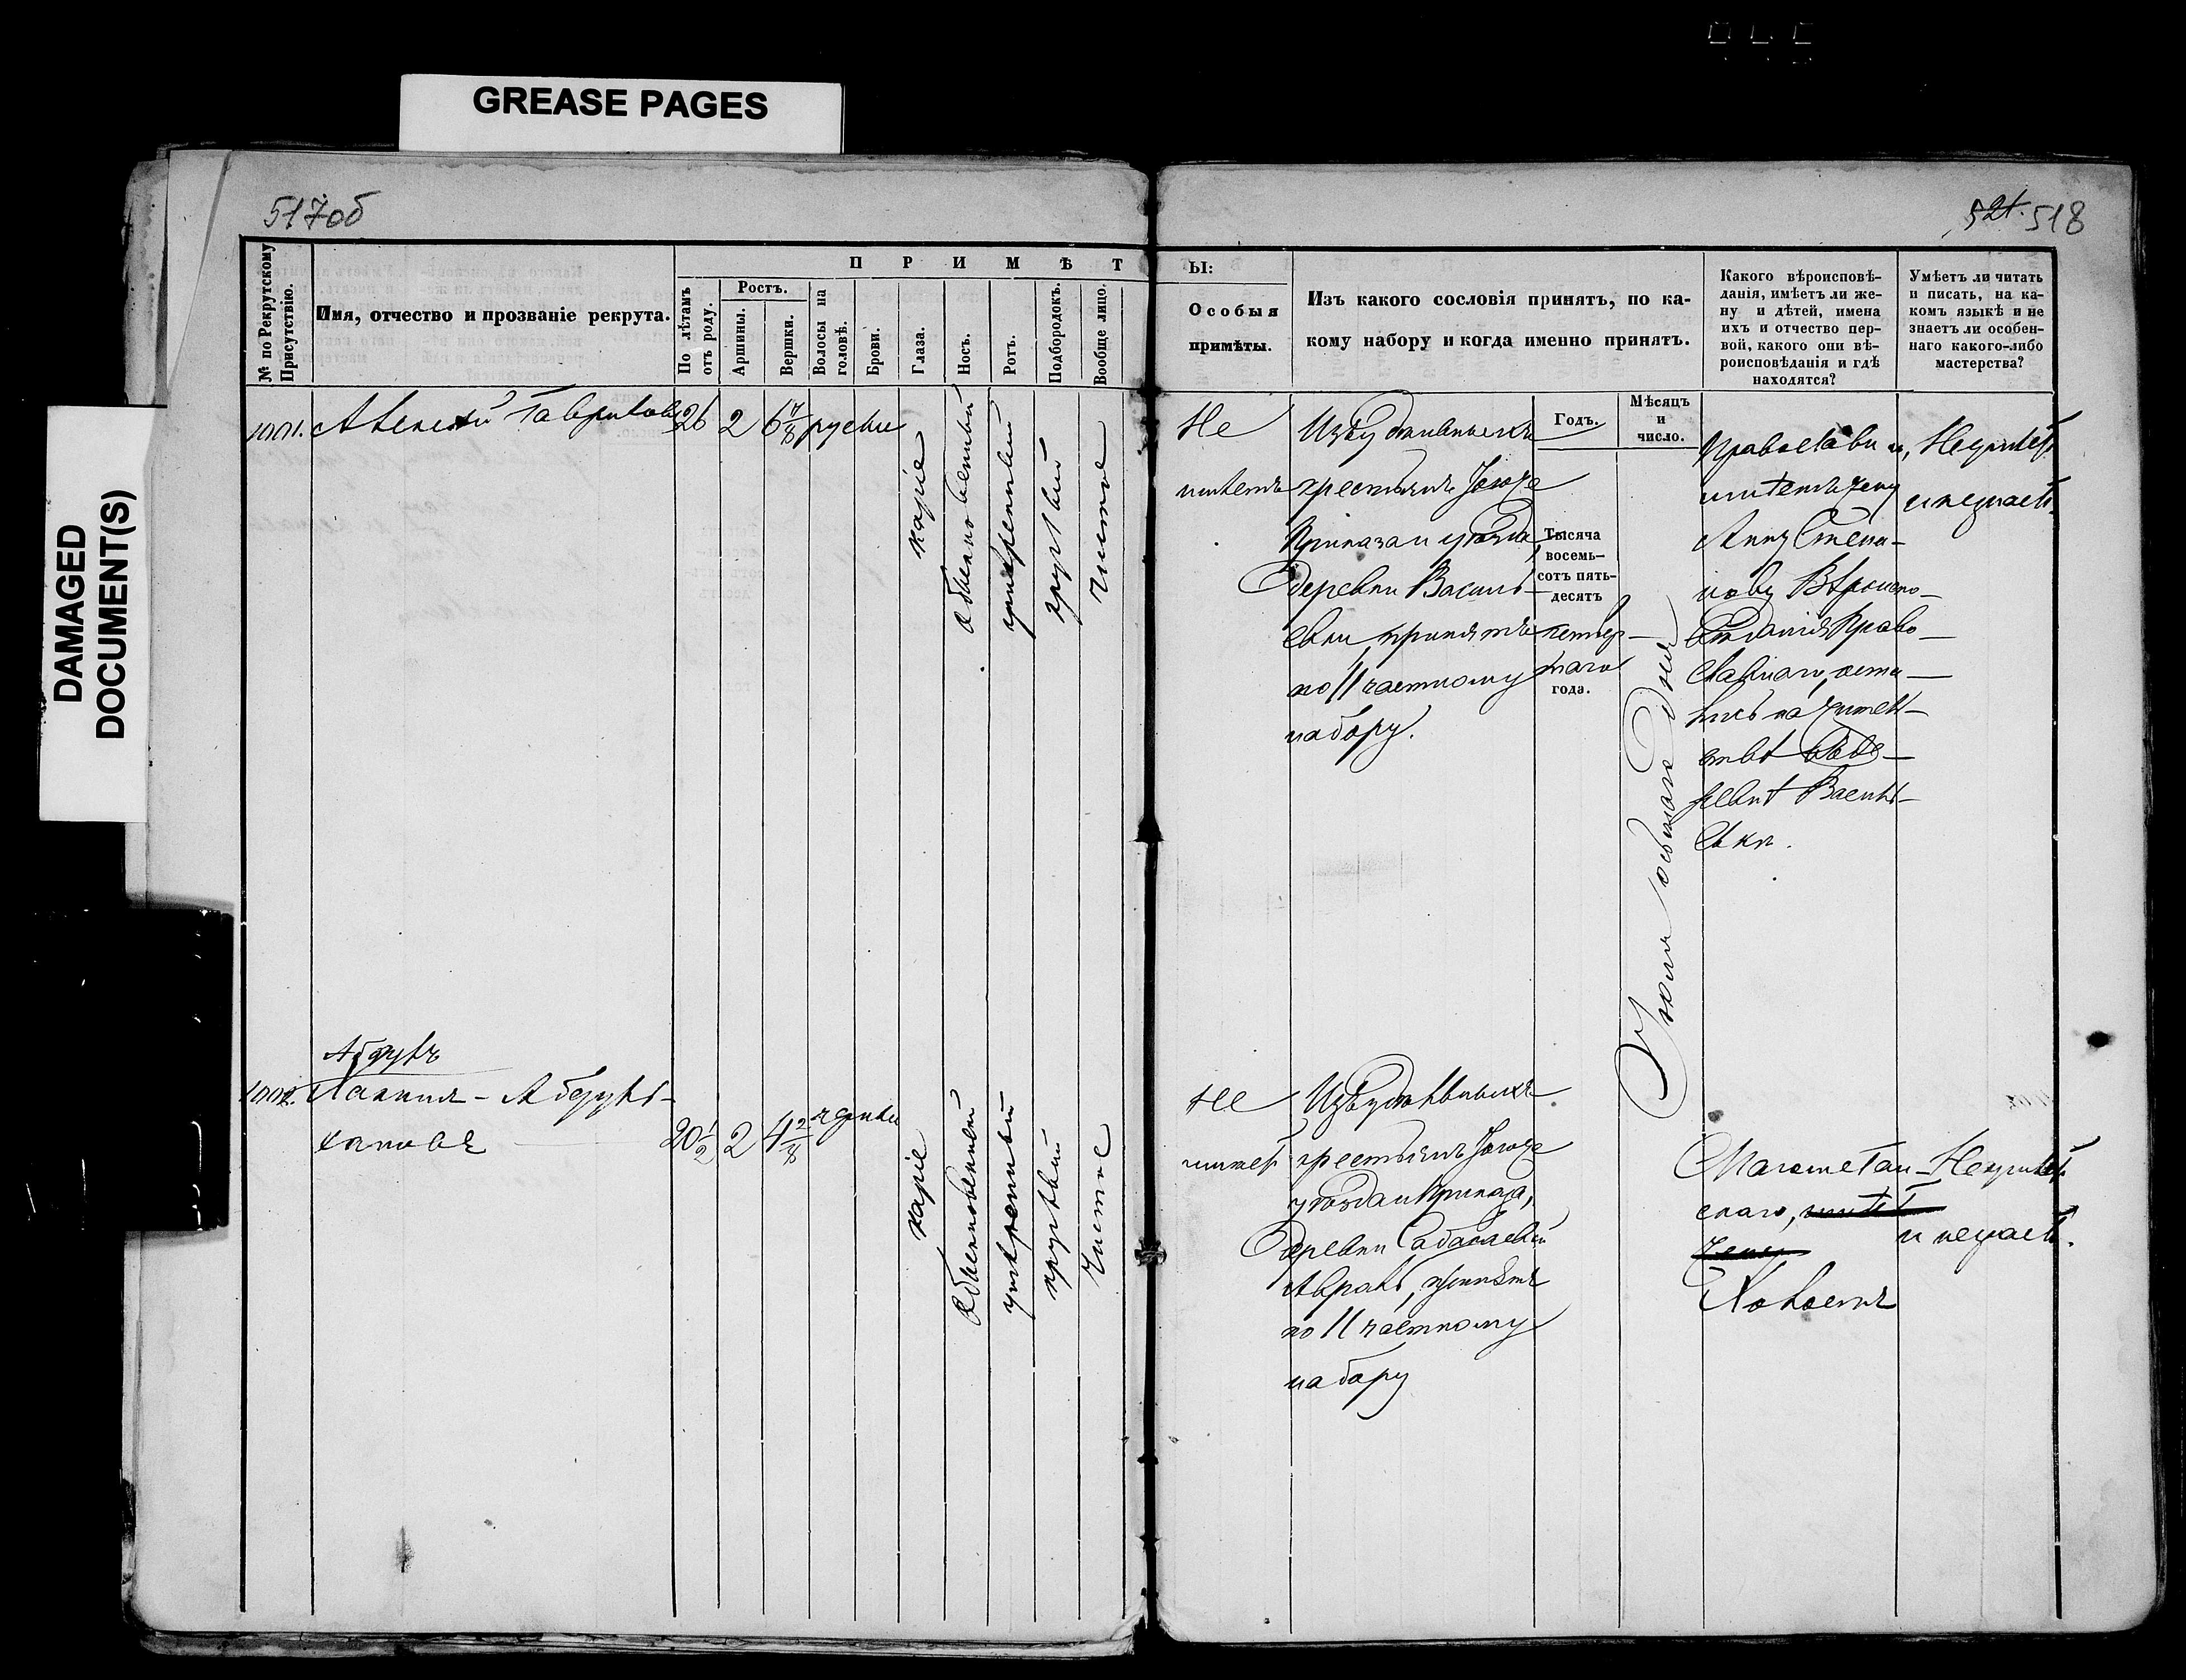 GREASE PAGES
DAMAGED
DOCUMENT(S)
517об
№ по Рекрутскому
Присутствію.
Имя, отчество и прозваніе рекрута.
П Р И М Ѣ Т
По лѣтамъ
отъ роду.
Ростъ.
Аршины.
Вершки.
Волосы на
головѣ.
Брови.
Глаза.
Носъ.
Ротъ.
Подбородокъ.
Вообще лицо.
1001. Алексѣй Гавриловъ 26 2 6 7/8 русые
каріе
обыкновенный
умѣренный
круглый
чистое
Абдулъ
1002. Абдулъ-
хановъ 20 1/2 2 4 2/8 черные
каріе
обыкновенный
умѣренный
круглый
чистое
521. 518
Ы:
Особыя
примѣты.
Изъ какого сословія принятъ, по ка-
кому набору и когда именно принятъ.
Какого вѣроисповѣ-
данія, имѣетъ ли же-
ну и дѣтей, имена
ихъ и отчество пер-
вой, какого они вѣ-
роисповѣданія и гдѣ
находятся?
Умѣетъ ли читать
и писать, на ка-
комъ языкѣ и не
знаетъ ли особен-
наго какого-либо
мастерства?
Годъ.
Мѣсяцъ
и
число.
Не
имѣетъ
Изъ удѣльныхъ
крестьянъ
Приказа и уѣзда
деревни Василь-
евки, принятъ
по II частному
набору.
Тысяча
восемь-
сотъ пять-
десятъ
четвер-
таго
года.
Іюля осьмаго дня
Православн.,
имѣетъ жену
Анну Степа-
нову Вѣроиспо-
вѣданія Право-
славнаго, оста-
лись на житель-
ствѣ въ де-
ревнѣ Василь-
евки.
Неумѣетъ
и незнаетъ.
Не
имѣет
Изъ удѣльныхъ
крестьянъ
уѣзда и Приказа,
деревни
принятъ
по II частному
набору
Магометан-
скаго, имѣетъ
Холостъ
Неумѣетъ
и незнаетъ.